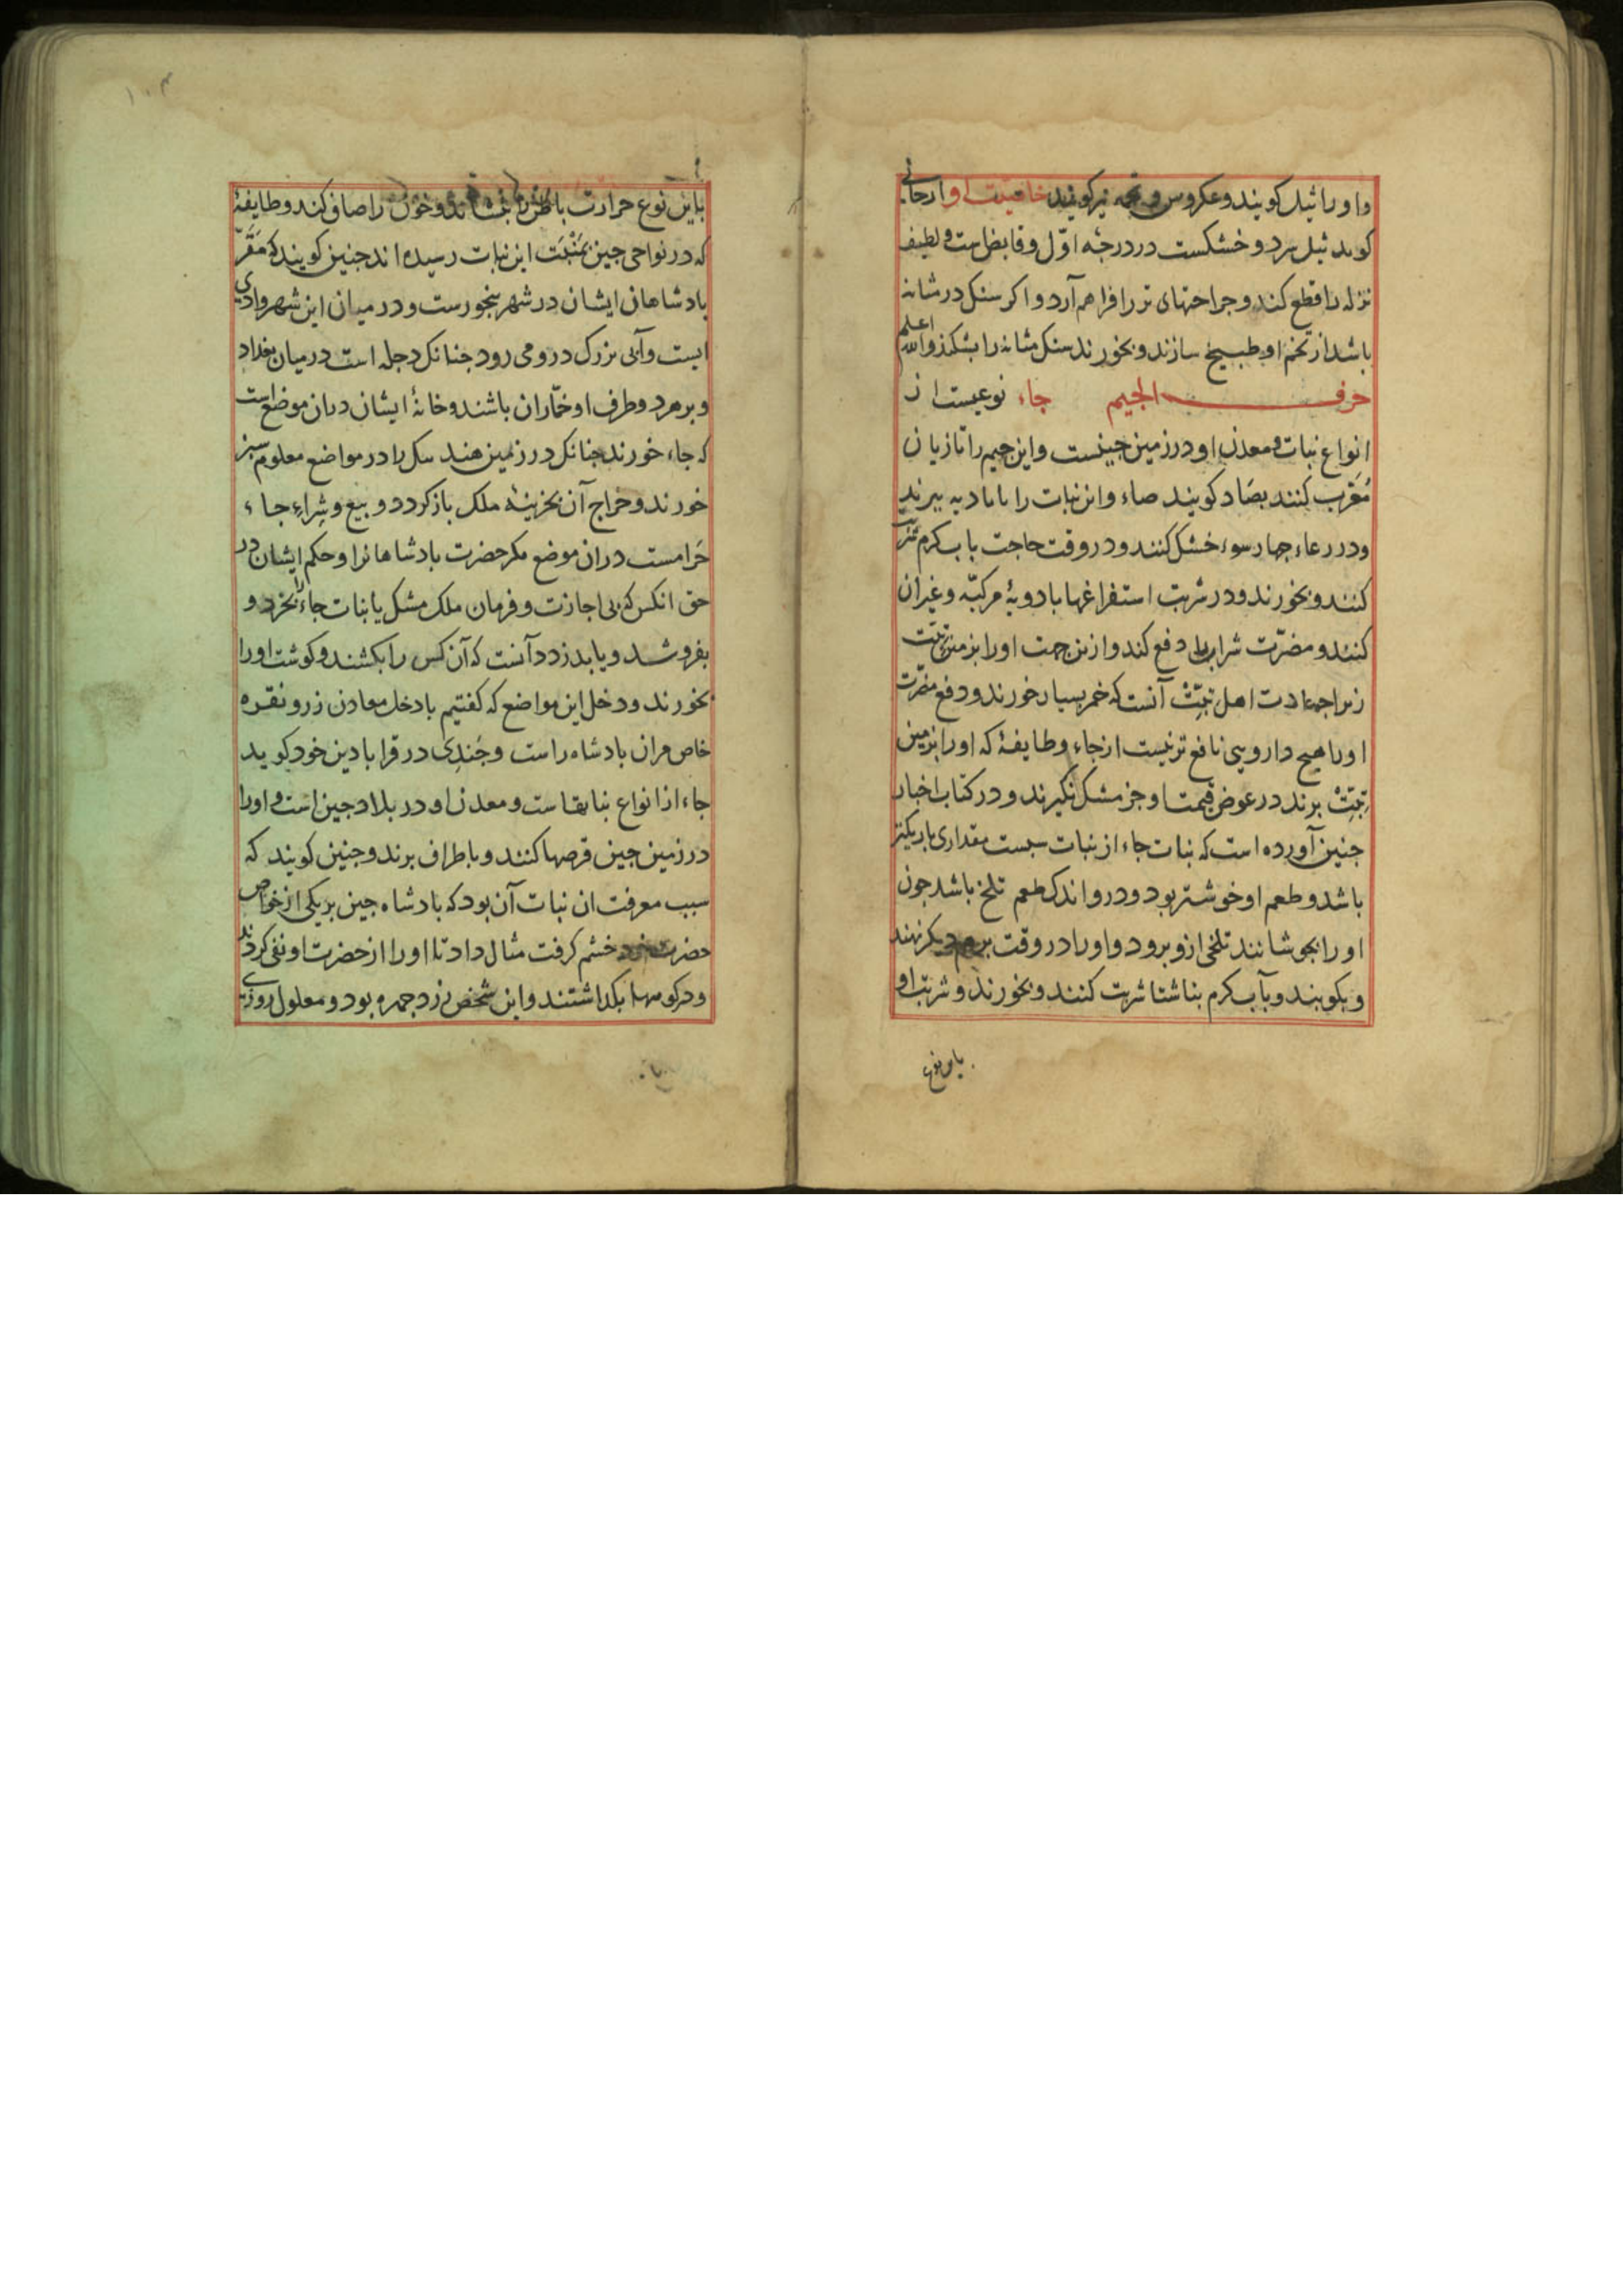 واورا ثیل کویند وعکروس و نجمه نیز کویند خاصیت او ارجانی
کوید ثیل سرد و خشکست در درجه اوّل و قابض است و لطیف
نزله را قطع کند و جراحتهای تر را فراهم آرد و اکر سنک در مثانه
باشد از تخم او طبیخ سازند و بخورند سنک مثانه را بشکند والله اعلم
حرف الجیم جاء نوعیست از
انواع نبات و معدن او در زمین چینست و این جیم را تازیان
مُعَرّب کنند بصاد کویند صاء و این نبات را بامادیه برند
و در رعاء چهار سوء خشک کنند و در وقت حاجت باب کرم شربت
کنند و بخورند و در شربت استفراغها بادویهٔ مرکبّه و غیر آن
کنند و مضرّت شراب را دفع کند و ازین جهت اورا بزمین تبّت
زیرا جه عادت اهل تبّت آنست که خمر بسیار خورند و دفع مضرت
اورا هیچ دارویی نافع تر نیست از جاء و طایفهٔ که اورا بزمین
تبّت برند در عوض قیمت او جز مشک نکیرند و در کتاب اخبار
جنین آورده است که نبات جاء از نبات سبست مقداری باریکتر
باشد و طعم او خوشتر بود و درو اندک طعم تلخ باشد جون
اورا بجوشانند تلخی ازو برود و اورا در وقت بر هم دیکر نهند
و بکوبند و بآب کرم بناشتا شربت کنند و بخورند و شربت او
باین نوع
۱۰۳
باین نوع حرارت باطن را بنشاند و خون را صافی کند و طایفهٔ
که در نواحی جین بمَنْبَت این نبات رسیده اند جنین کویند که مَقَرّ
بادشاهان ایشان در شهر ینجورست و در میان این شهر وادی
ایست و آبی بزرک درو می رود جنانک دجله است در میان بغداد
و بر هر دو طرف او خمّاران باشند و خانهٔ ایشان دران موضع است
که جاء خورند جنانک در زمین هند سک را در مواضع معلوم سبز
خورند و خراج آن بخزینهٔ ملک باز کردد و بیع و شِراء جاء
حَرامست دران موضع مکر حضرت بادشاهانرا و حکم ایشان در
حق انکس که بی اجازت و فرمان ملک مشک یا نبات جاء را بخرد و
بفروشد و یا بدزدد آنست که آن کس را بکشند و کوشت اورا
بخورند و دخل این مواضع که کفتیم بادخل معادن زر و نقره
خاص مران بادشاه راست و جَندِی در قرابادین خود کوید
جاء از انواع نباتهاست و معدن او در بلاد جین است و اورا
در زمین جین قرصها کنند و باطراف برند و جنین کویند که
سبب معرفت ان نبات آن بود که بادشاه جین بر یکی از خواص
حضرت خود خشم کرفت مثال داد تا اورا از حضرت او نفی کردند
و در کوهها بکذاشتند و این شخص زرد جهره بود و معلول روزی